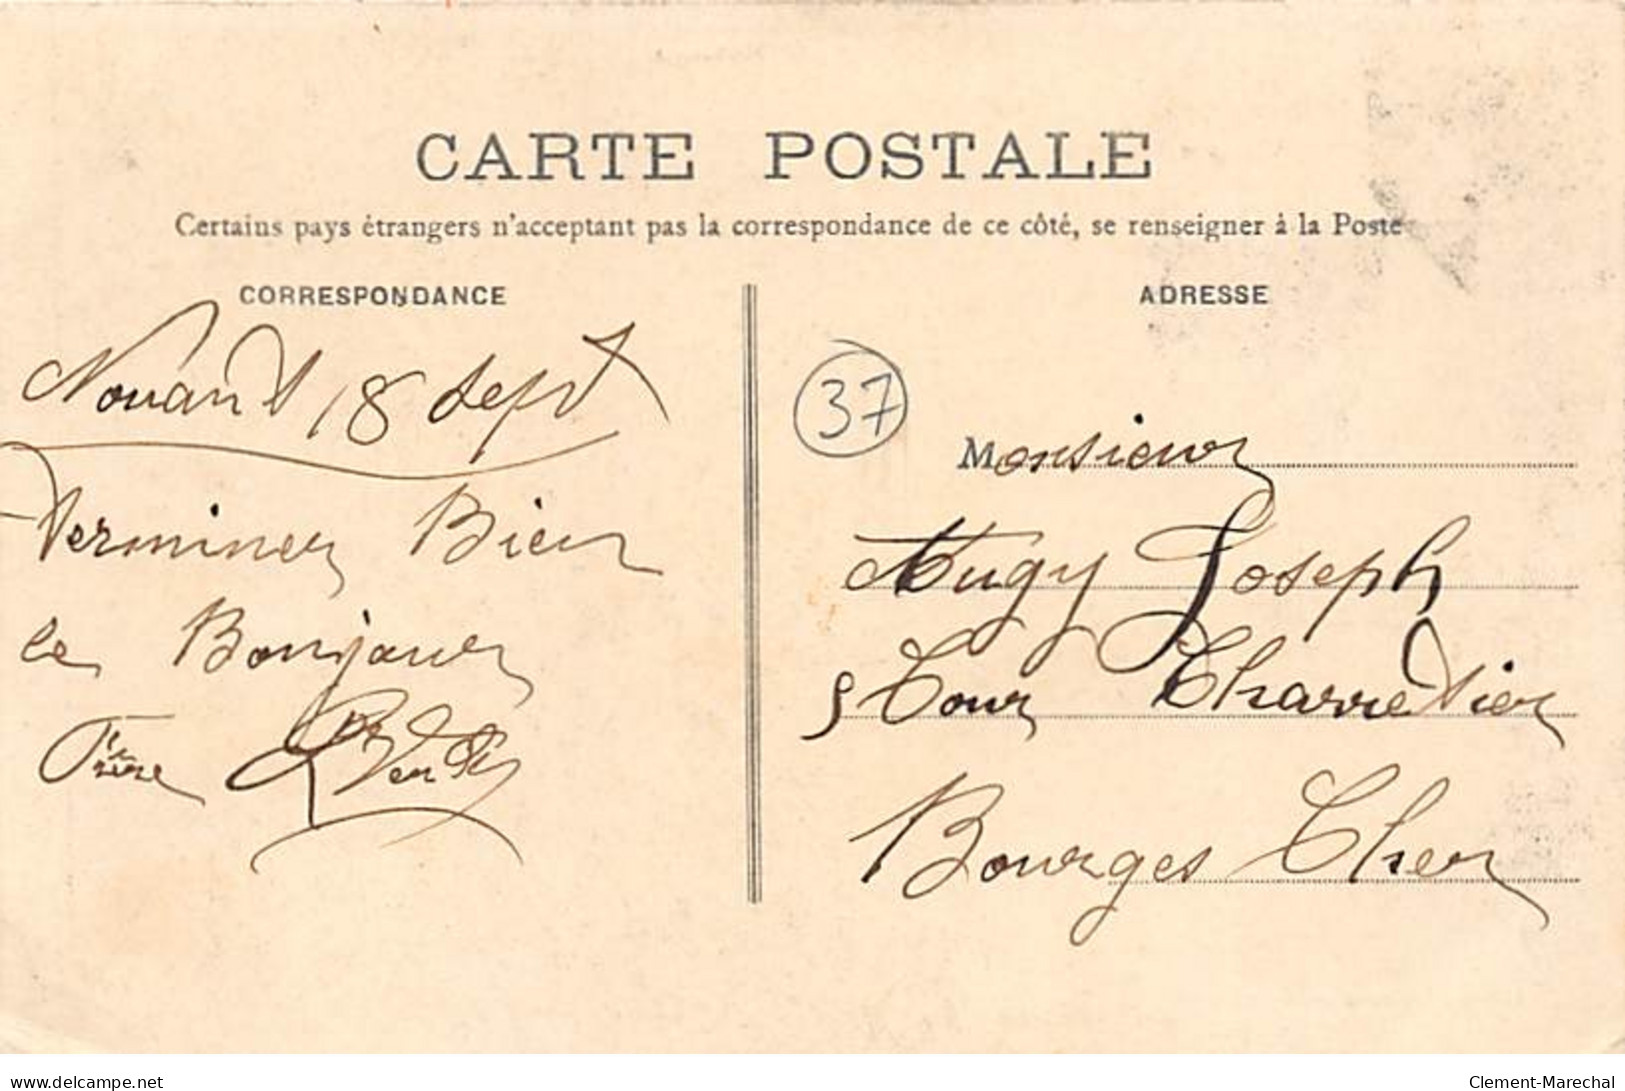 CARTE POSTALE
Certains pays étrangers n'acceptant pas la correspondance de ce côté, se renseigner à la Poste
CORRESPONDANCE
Nouant 18 Sept
Terminer Bien
le Bonjour
Frère
ADRESSE
37
Monsieur
Joseph
5 Cour Charretier
Bourges Cher
delcampe.net
Clement-Marechal